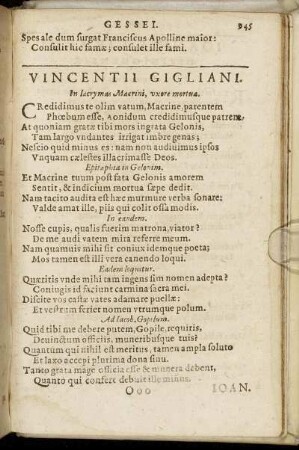 GESSEI. 945
Spes ale dum surgat Franciscus Apolline maior:
Consulit hic famæ; consulet ille fami.
VINCENTII GIGLIANI.
In lacrymas Macrini, vxore mortua.
CRedidimus te olim vatum, Macrine, parentem
Phœbum esse, Aonidum credidimusque patrem,
At quoniam gratæ tibi mors ingrata Gelonis,
Tam largo vndantes irrigat imbre genas;
Nescio quid minus es: nam non audiuimus ipsos
Vnquam cælestes illacrimasse Deos.
Epitaphia in Gelonim.
Et Macrine tuum post fata Gelonis amorem
Sentit, & indicium mortua sæpe dedit.
Nam tacito audita est hæc murmure verba sonare:
Valde amat ille, piis qui colit ossa modis.
In eandem.
Nosse cupis, qualis fuerim matrona, viator?
De me audi vatem mira referre meum.
Nam quamuis mihi sit coniux idemque poeta;
Mos tamen est illi vera canendo loqui.
Eadem loquitur.
Quæritis vnde mihi tam ingens sim nomen adepta?
Coniugis id faciunt carmina sacra mei.
Discite vos castæ vates adamare puellæ:
Et vestram feriet nomen vtrumque polum.
Ad Iacob. Gopilum.
Quid tibi me debere putem, Gopile, requitis,
Deuinctum officiis, muneribusque tuis?
Quantum qui nihil est meritus, tamen ampla soluto
Et laxo accepi plurima dona sinu.
Tanto grata mage officia esse & munera debent,
Quanto qui confert debuit ille minus.
Ooo IOAN.